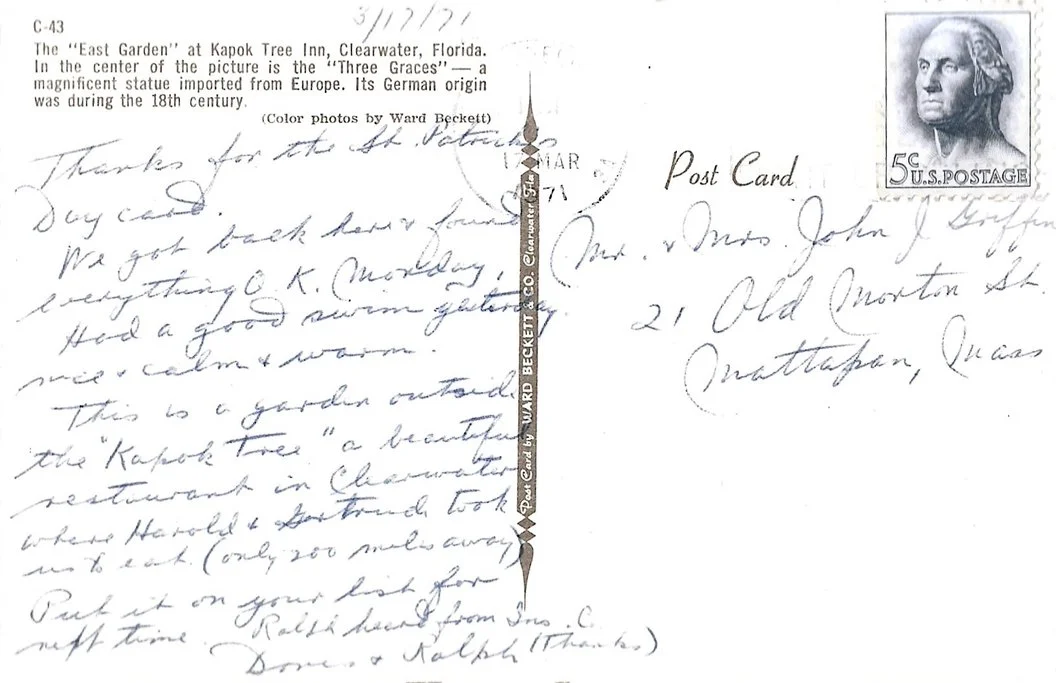 3/17/71
C-43
The "East Garden" at Kapok Tree Inn, Clearwater, Florida.
In the center of the picture is the "Three Graces" — a
magnificent statue imported from Europe. Its German origin
was during the 18th century.
(Color photos by Ward Beckett)
Thanks for the St. Patricks
Day card.
We got back here & found
everything O.K. Monday,
Had a good swim yesterday.
nice & calm & warm.
This is a garden outside
the "Kapok Tree" a beautiful
restaurant in Clearwater
where Harold & Gertrude took
us to eat. (only 200 miles away)
Put it on your list for
next time. Ralph heard from Ins. Co.
(Thanks)
Doris & Ralph
Post Card by WARD BECKETT & CO. Clearwater, Fla.
17 MAR
1971
Post Card
5c
U.S. POSTAGE
Mr. & Mrs. John J Griffin
21 Old Morton St.
Mattapan, Mass